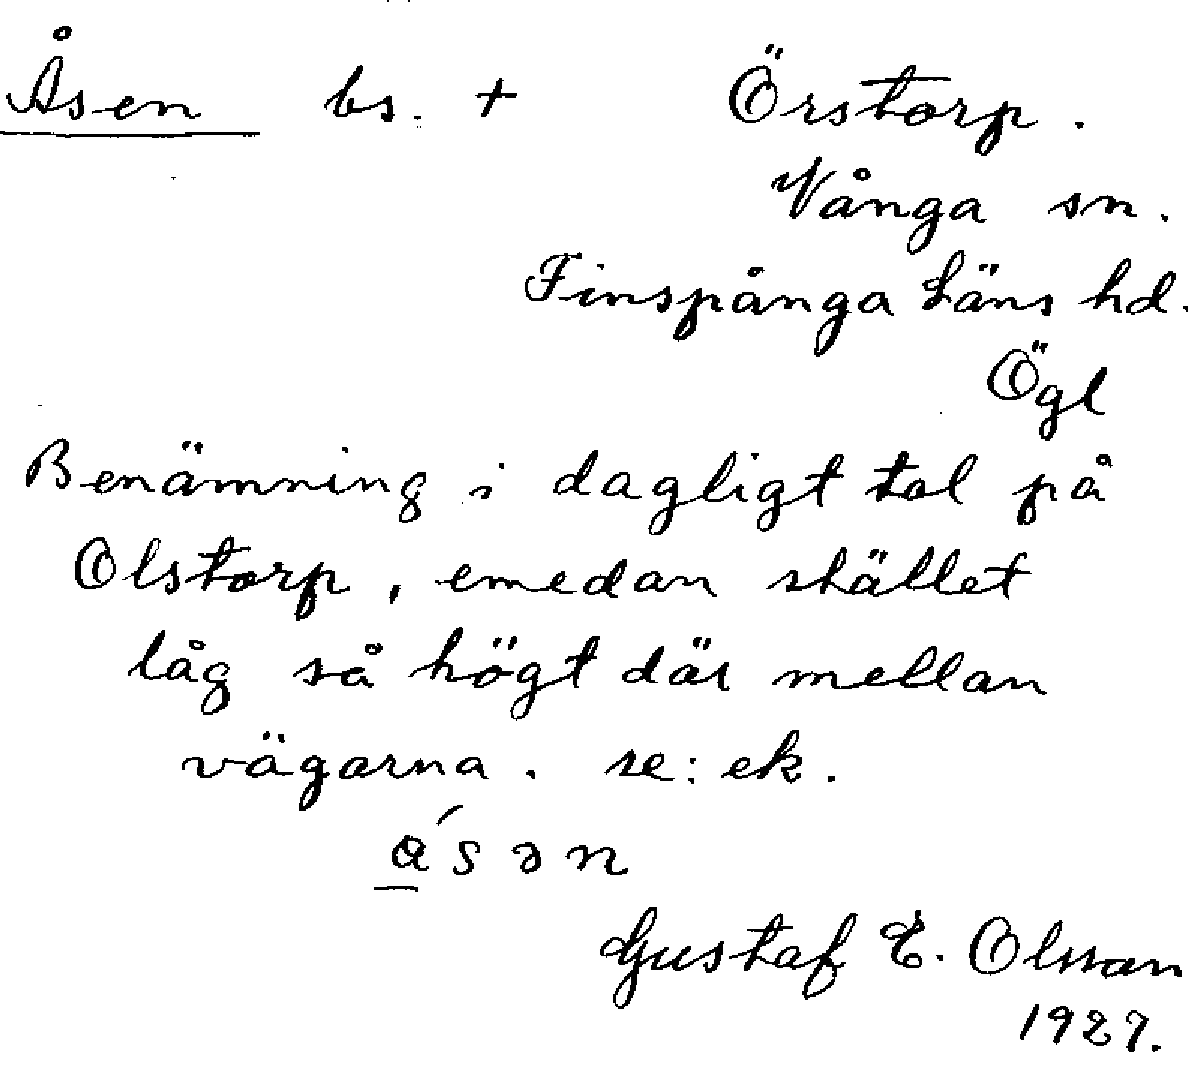 Åsen bs. + Örstorp.
Vånga sn.
Finspånga Läns hd.
Ögl
Benämning i dagligt tal på
Olstorp, emedan stället
låg så högt där mellan
vägarna. se: ek.
Gustaf E. Olsson
1927.